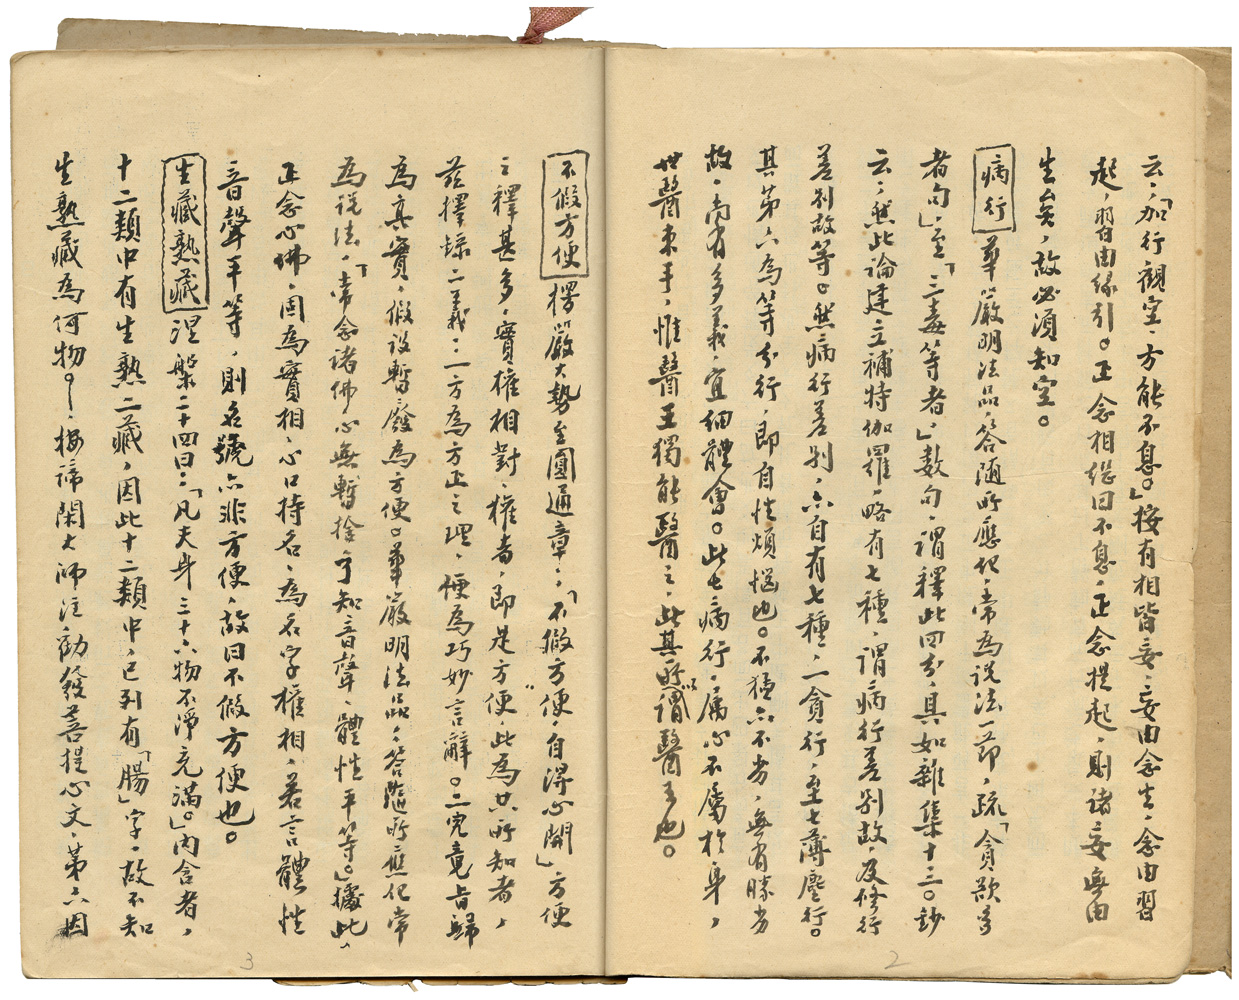 云,「加行觀空,方能不息。」按有相皆妄,妄由念生,念由習
起,習由緣引。正念相繼曰不息,正念提起,則諸妄無由
生矣,故必須知空。
病行 華嚴明法品,答隨所應化,常為說法一節,疏「貪欲多
者句」,至「三毒等者」數句,謂釋此四分,具如雜集十三。鈔
云,然此論建立補特伽羅,略有七種,謂病行差別故,及修行
差別故等。然病行差別,亦自有七種,一貪行,至七薄塵行。
其第六為等分行,即自性煩惱也。不猛亦不劣,無有勝劣
故,尚有多義,宜細體會。此七病行,屬心不屬於身,
世醫束手,惟醫王獨能醫之,此其所以謂醫王也。
不假方便 楞嚴大勢至圓通章,「不假方便,自得心開」方便
之釋甚多,實權相對,權者,即是方便,此為共所知者,
茲擇錄二義:一方為方正之理,便為巧妙言辭。二究竟旨歸
為真實,假設暫廢為方便。華嚴明法品,答隨所應化常
為說法,「常念諸佛心無暫捨,了知音聲,體性平等。」據此,
正念心佛,固為實相,心口持名,為名字權相,若言體性
音聲平等,則名號亦非方便,故曰不假方便也。
生藏熟藏 涅槃二十四曰:「凡夫身三十六物不淨充滿。」內含者,
十二類中有生熟二藏,因此十二類中,已列有「腸」字,故不知
生熟藏為何物。按諦閑大師注勸發菩提心文,第六因
3
2